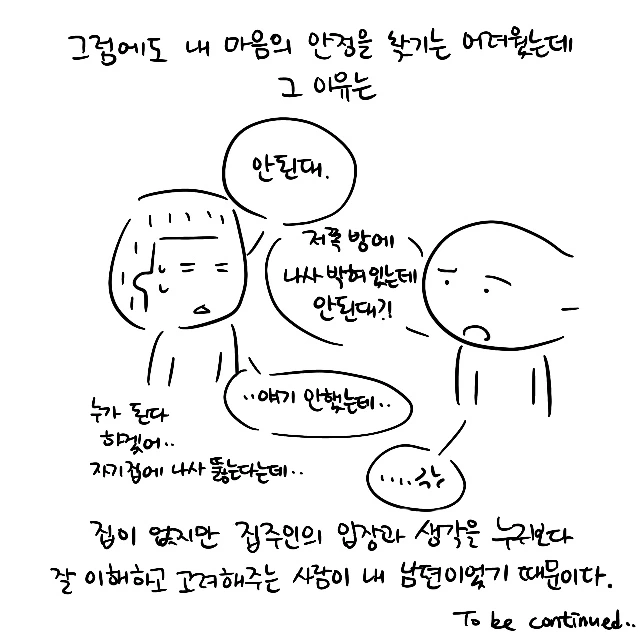 그럼에도 내 마음의 안정을 찾기는 어려웠는데
그 이유는
안된대.
저쪽 방에
나사 박혀있는데
안된대?!
..얘기 안했는데..
누가 된다
하겠어..
자기집에 나사 뚫는다는데..
....각
집이 없지만 집주인의 입장과 생각을 누구보다
잘 이해하고 고려해주는 사람이 내 남편이었기 때문이다.
To be continued..